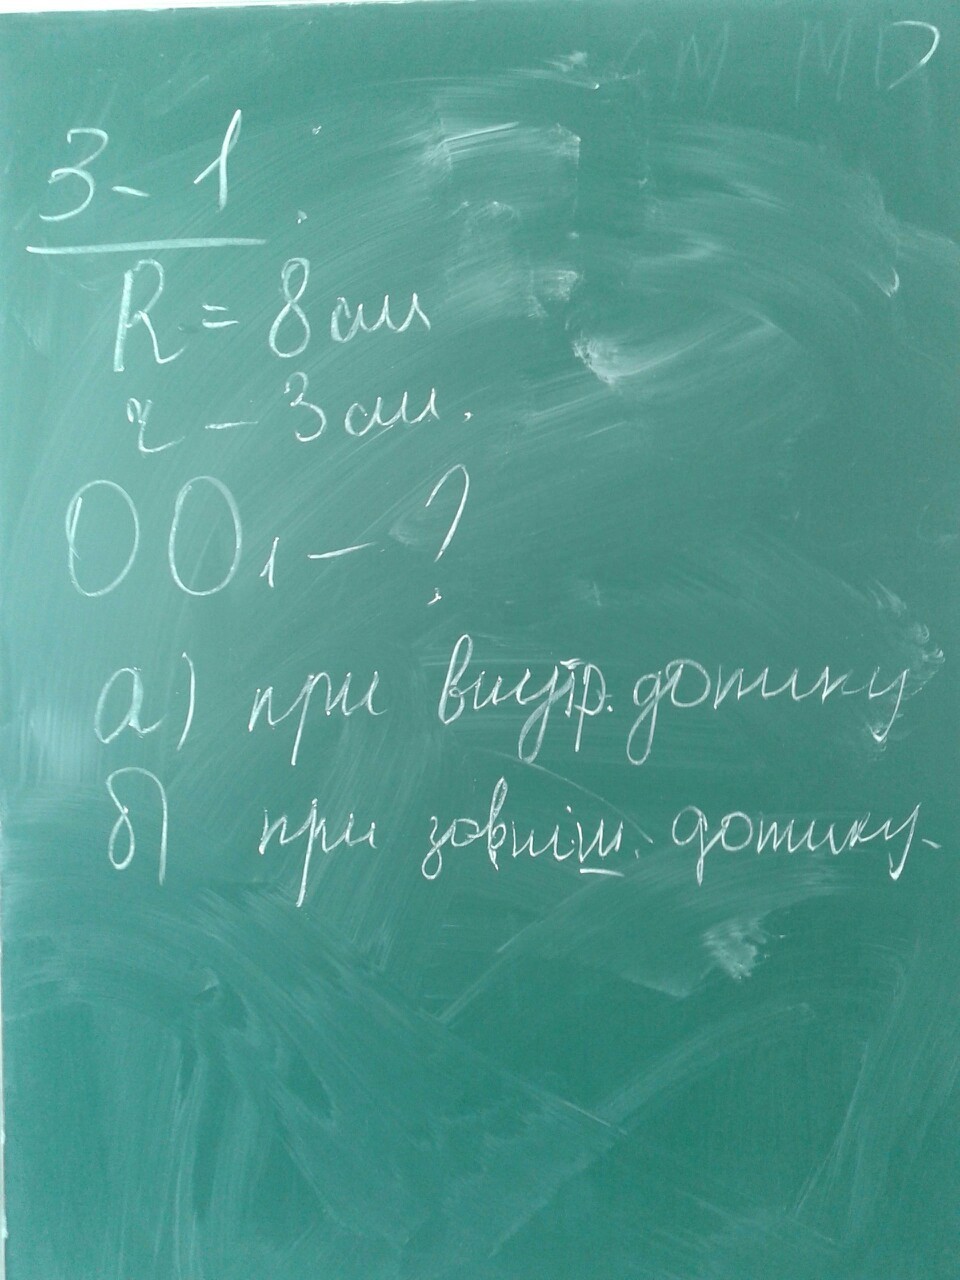 М МD
З-1
R = 8 см
r - 3 см.
OO₁ - ?
а) при внутр. дотику
б) при зовніш. дотику.